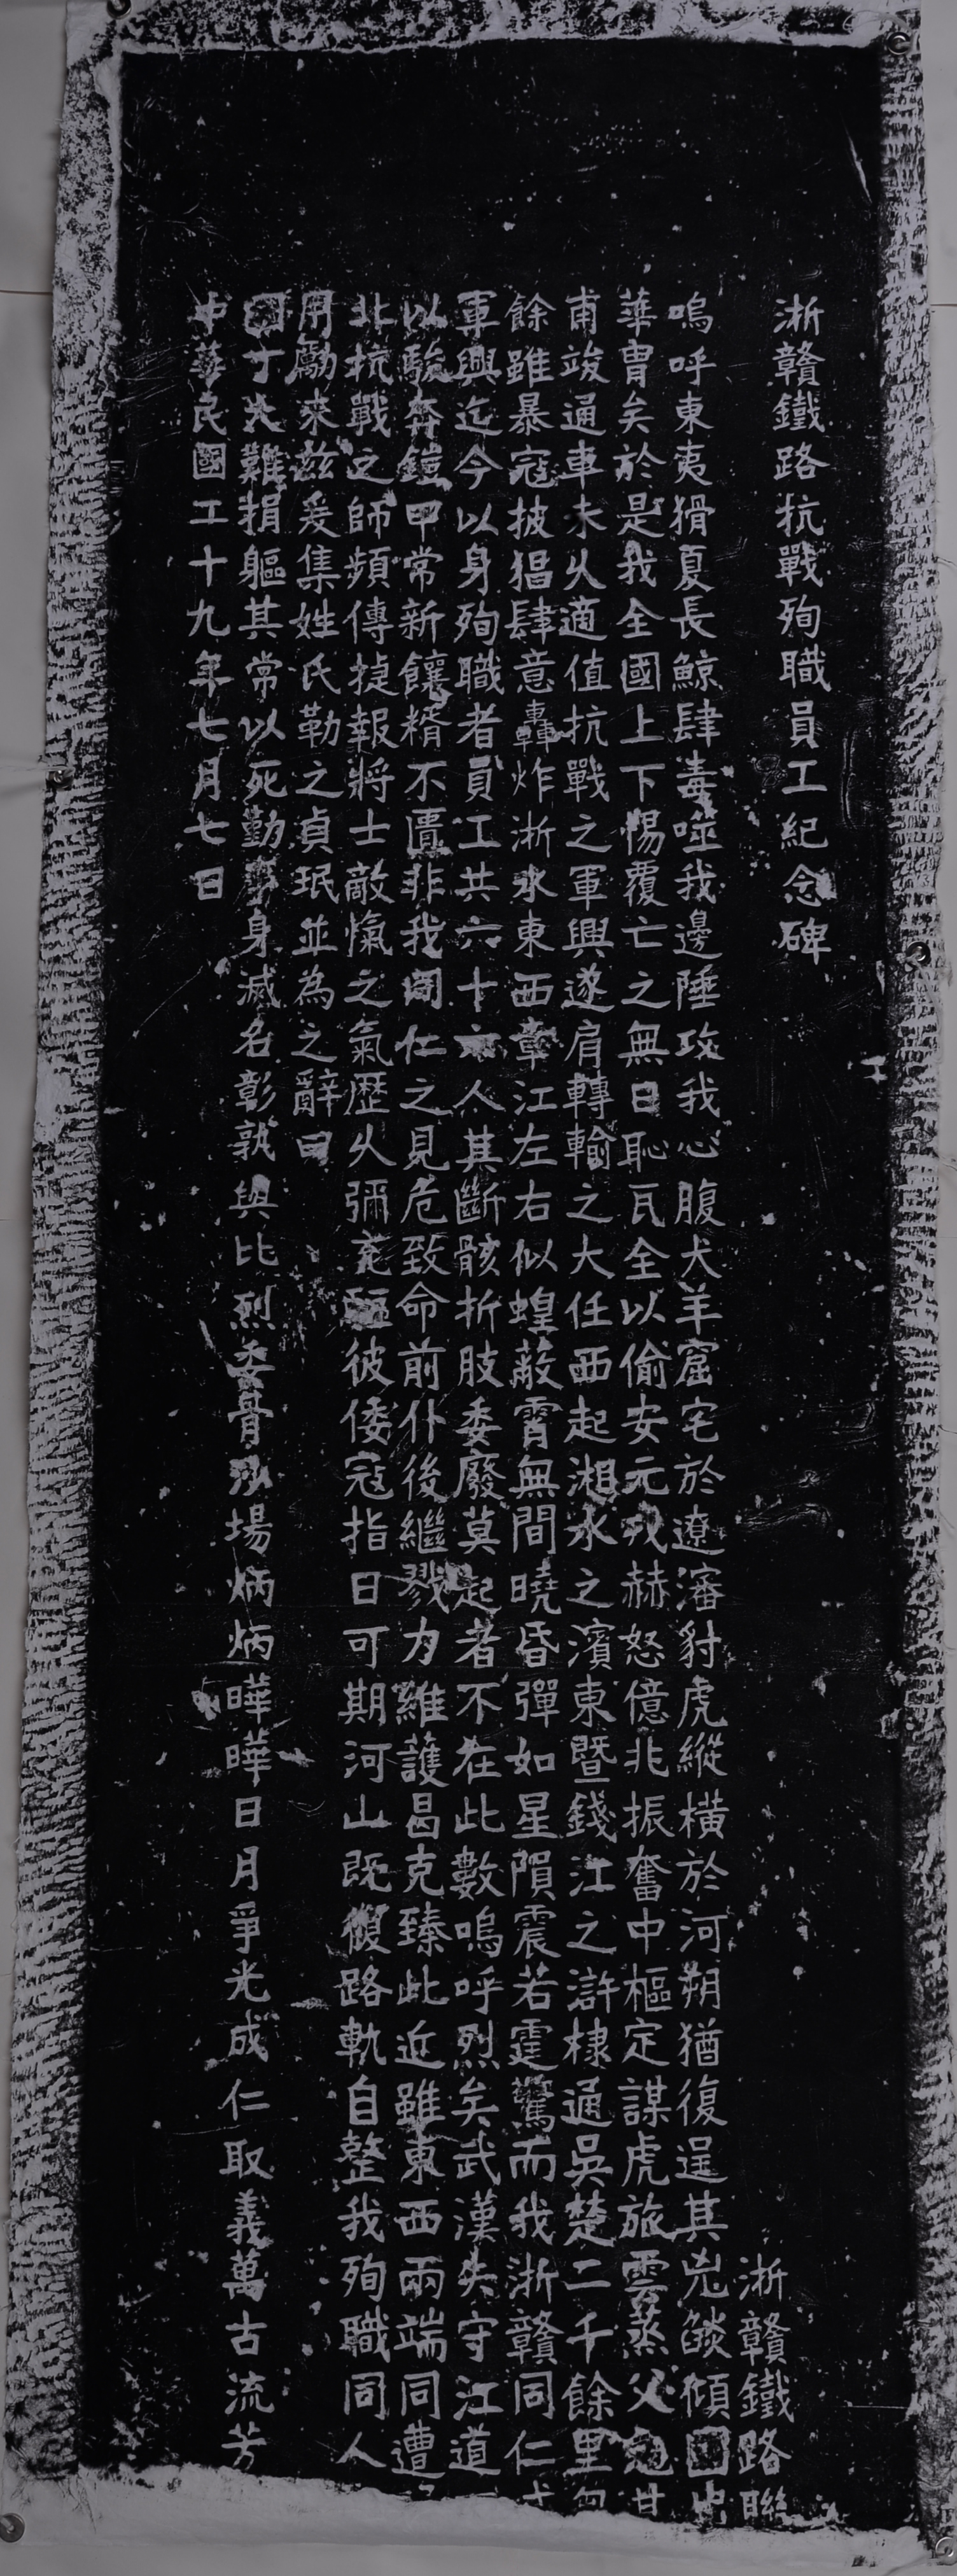 浙贛鐵路抗戰殉職員工紀念碑
浙贛鐵路聯
嗚呼東夷猾夏長鯨肆毒噬我邊陲攻我心腹犬羊窟宅於遼瀋豺虎縱橫於河朔猶復逞其兇燄傾
華冑矣於是我全國上下惕覆亡之無日恥瓦全以偷安元戎赫怒億兆振奮中樞定謀虎旅雲蒸父
甫竣通車未久適值抗戰之軍興遂肩轉輸之大任西起湘水之濱東暨錢江之滸棣通吳楚二千餘里
餘雖暴寇披猖肆意轟炸浙水東西章江左右似蝗蔽霄無間曉昏彈如星隕震若霆驚而我浙贛同仁
軍興迄今以身殉職者員工共六十六人其斷骸折肢委廢莫起者不在此數嗚呼烈矣武漢失守江道
以駿奔鎧甲常新饟糈不匱非我同仁之見危致命前仆後繼戮力維護曷克臻此近雖東西兩端同遭
北抗戰之師頻傳捷報將士敵愾之氣歷久彌充彼倭寇指日可期河山既復路軌自整我殉職同人
用勵來茲爰集姓氏勒之貞珉並為之辭曰
國丁大難捐軀其常以死勤事身滅名彰孰與比烈委骨沙場炳炳曄曄日月爭光成仁取義萬古流芳
中華民國二十九年七月七日